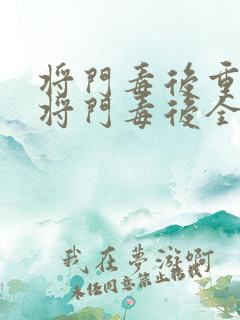 将門毒後重
将門毒後全
我在夢游啊
未経同意禁止転載